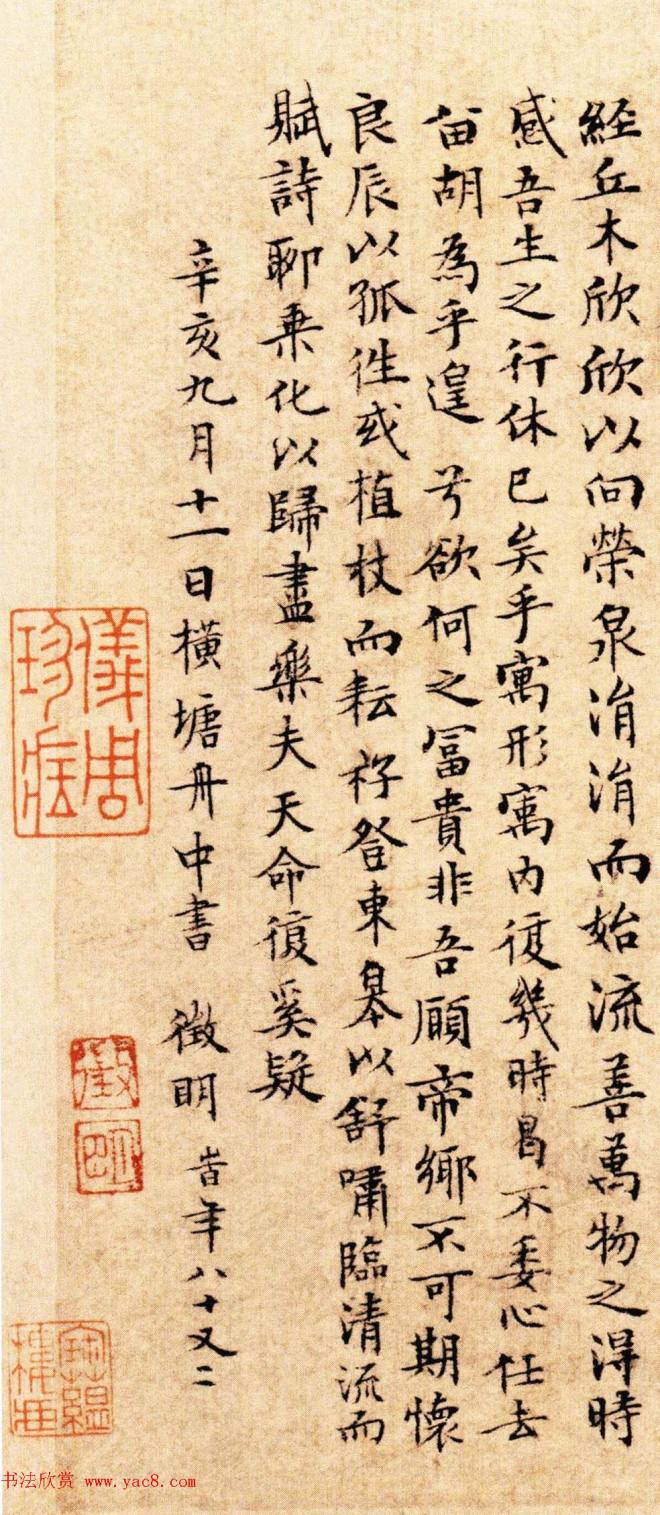 經丘木欣欣以向榮泉涓涓而始流善萬物之得時
感吾生之行休已矣乎寓形寓內復幾時曷不委心任去
留胡為乎遑 兮欲何之冨貴非吾願帝鄉不可期懷
良辰以孤徃或植杖而耘耔登東皋以舒嘯臨清流而
賦詩聊乗化以歸盡樂夫天命復奚疑
辛亥九月十一日橫塘舟中書 徵明 旹年八十又二
儀周珍藏
徵明
书法欣赏 www.yac8.com